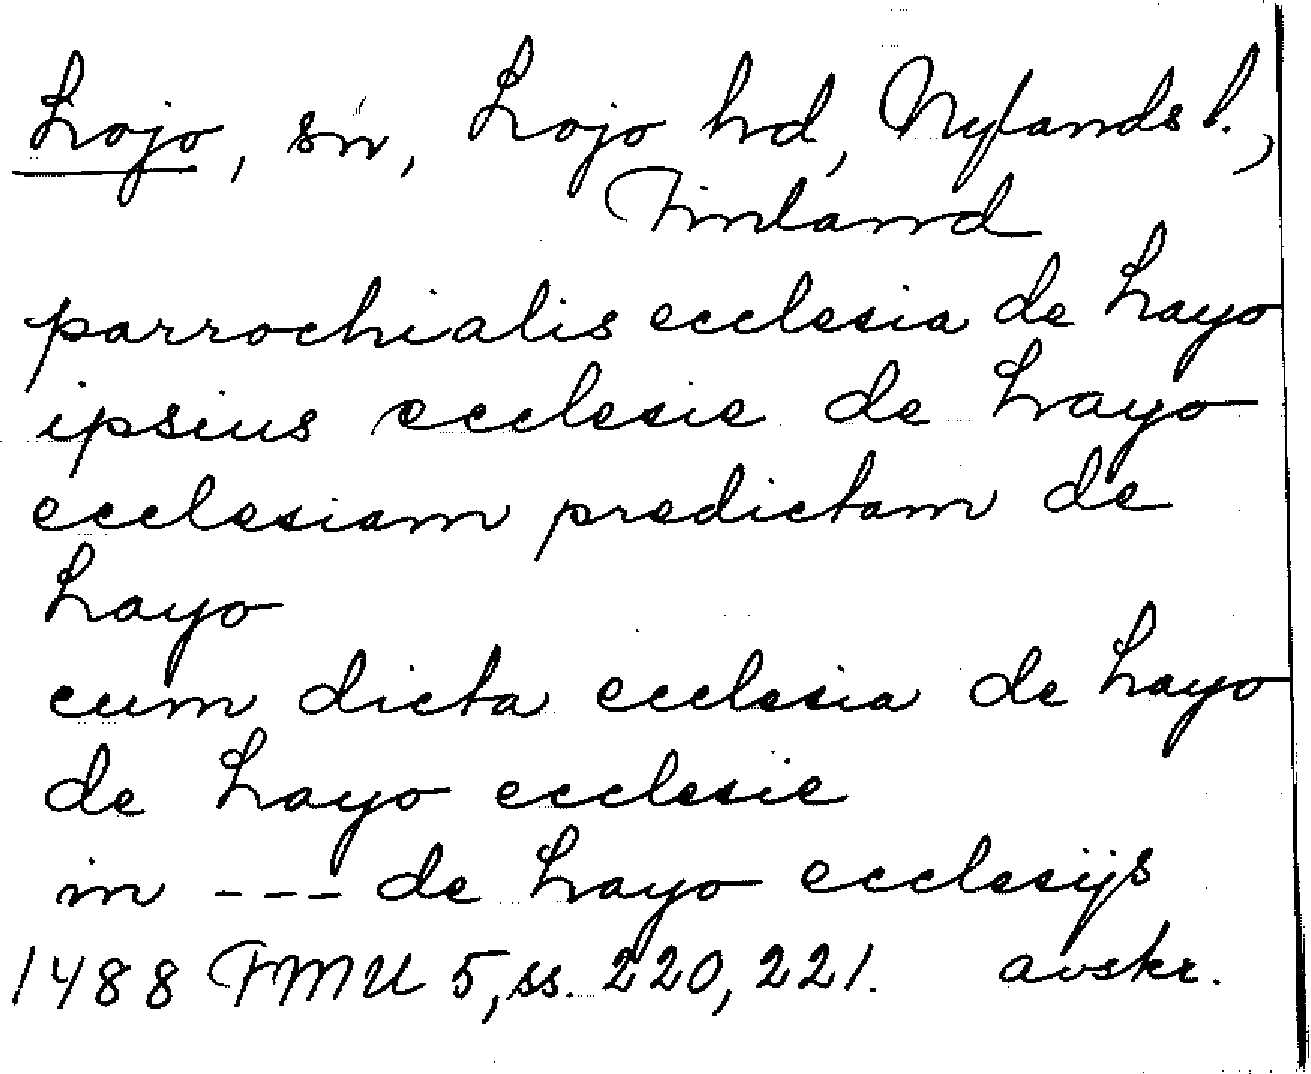 Lojo, sn, Lojo hd, Nylands l.,
Finland
parrochialis ecclesia de Layo
ipsius ecclesie de Layo
ecclesiam predictam de
Layo
cum dicta ecclesia de Layo
de Layo ecclesie
in --- de Layo ecclesijs
1488 FMU 5, ss. 220, 221. avskr.